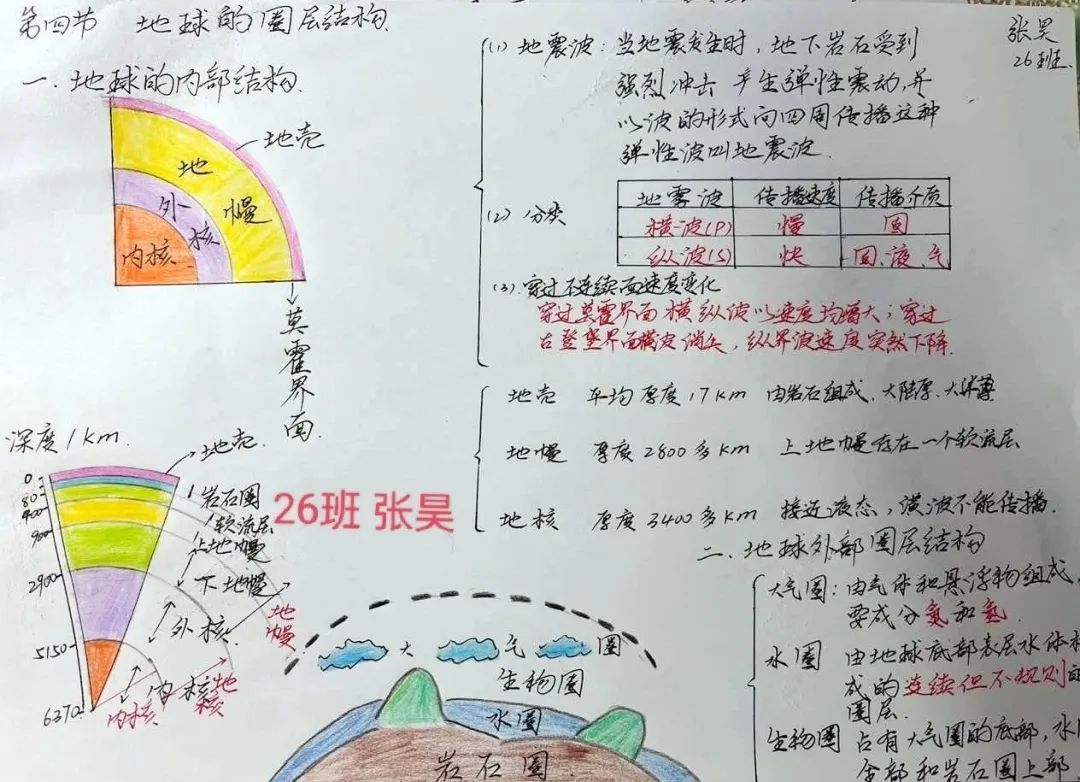 第四节 地球的圈层结构
张昊
26班.
一.地球的内部结构.
地壳
地
幔
外
核
内核.
莫
霍
界
面.
(1) 地震波:当地震发生时,地下岩石受到
强烈冲击 产生弹性震动,并
以波的形式向四周传播这种
弹性波叫地震波.
(2) 分类
地震波 传播速度 传播介质
横波(P) 慢 固
纵波(S) 快 固、液、气
(3).穿过不连续面速度变化
穿过莫霍界面横纵波以速度均增大;穿过
古登堡界面横波消失,纵界波速度突然下降.
地壳 平均厚度17km 由岩石组成.大陆厚.大洋薄
地幔 厚度2800多km 上地幔存在一个软流层
地核 厚度3400多km 接近液态,横波不能传播.
深度/km.
地壳.
0
80
400
900
2900
5150
6370
岩石圈
软流层
上地幔
下地幔
外核.
内核
地幔
地核
内核
26班 张昊
大气圈
生物圈
水圈
岩石圈.
二.地球外部圈层结构
大气圈:由气体和悬浮物组成,
要成分氮和氢
水圈 由地球底部表层水体
成的连续但不规则的
圈层.
生物圈 占有大气圈的底部,水
全部和岩石圈上部